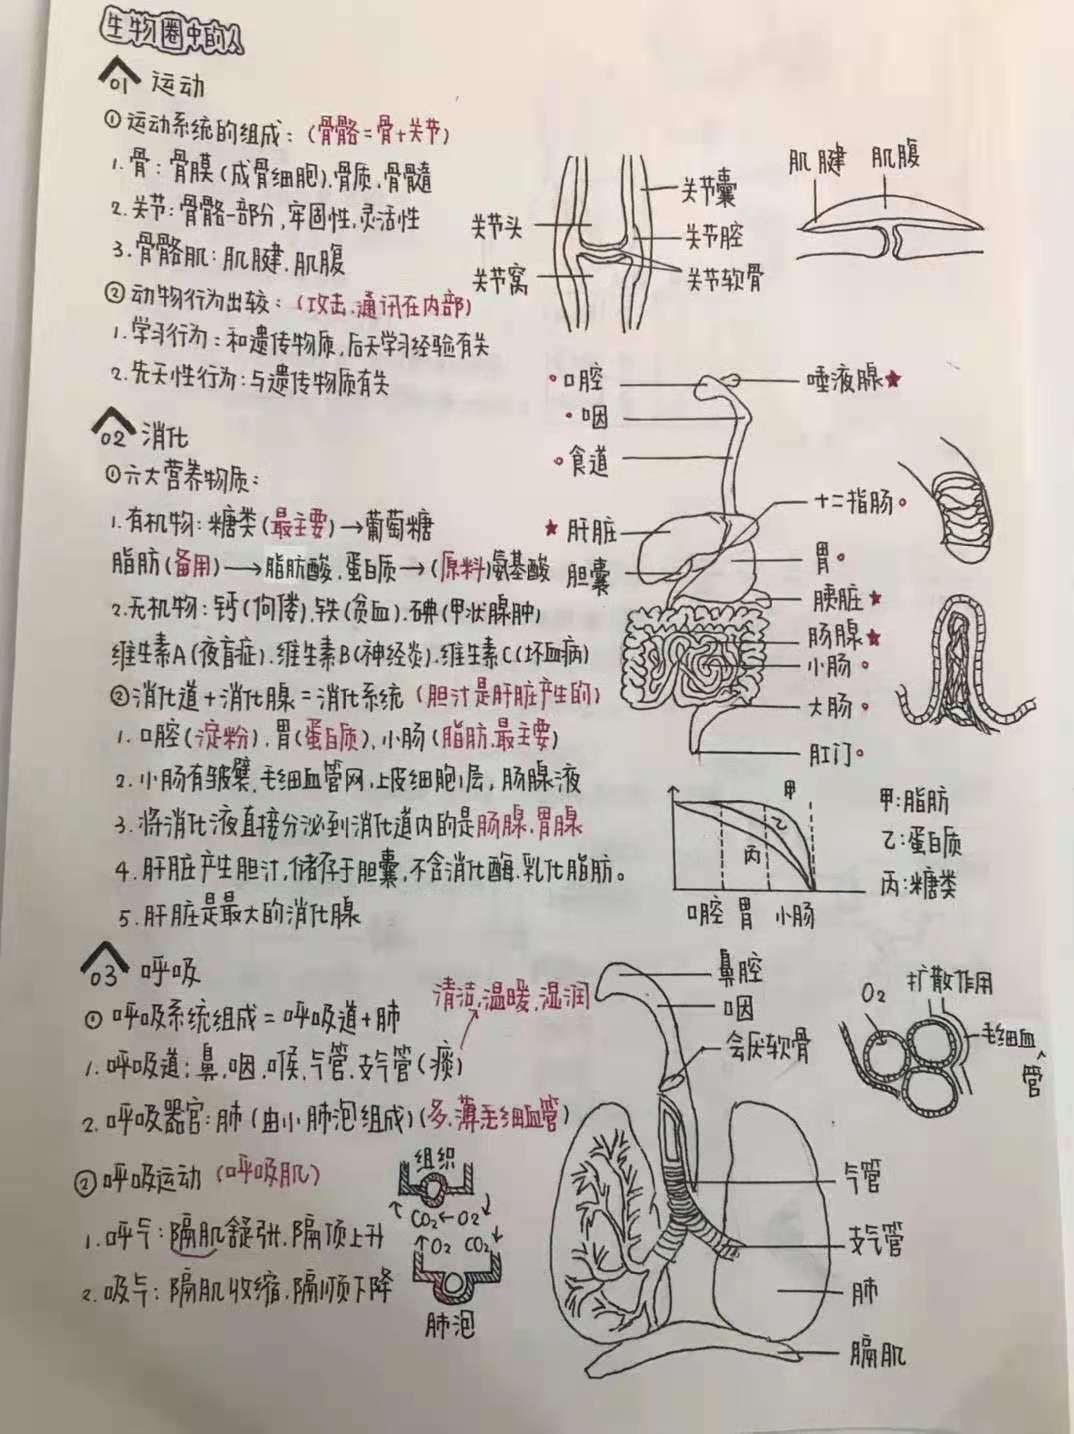 生物圈中的人
01 运动
①运动系统的组成：(骨骼=骨+关节)
1.骨：骨膜(成骨细胞).骨质.骨髓
2.关节：骨骼一部分,牢固性,灵活性
3.骨骼肌：肌腱.肌腹
②动物行为出较：(攻击.通讯在内部)
1.学习行为：和遗传物质,后天学习经验有关
2.先天性行为：与遗传物质有关
关节头
关节窝
关节囊
关节腔
关节软骨
肌腱 肌腹
02 消化
①六大营养物质：
1.有机物：糖类(最主要)→葡萄糖
脂肪(备用)→脂肪酸.蛋白质→(原料)氨基酸
2.无机物：钙(佝偻).铁(贫血).碘(甲状腺肿)
维生素A(夜盲症).维生素B(神经炎).维生素C(坏血病)
②消化道+消化腺=消化系统(胆汁是肝脏产生的)
1.口腔(淀粉).胃(蛋白质).小肠(脂肪.最主要)
2.小肠有皱襞.毛细血管网,上皮细胞1层,肠腺液
3.将消化液直接分泌到消化道内的是肠腺.胃腺
4.肝脏产生胆汁,储存于胆囊,不含消化酶.乳化脂肪。
5.肝脏是最大的消化腺
口腔
咽
食道
★肝脏
胆囊
唾液腺★
十二指肠
胃
胰脏★
肠腺★
小肠
大肠
肛门
甲
乙
丙
口腔 胃 小肠
甲:脂肪
乙:蛋白质
丙:糖类
03 呼吸
①呼吸系统组成=呼吸道+肺
清洁,温暖,湿润
1.呼吸道：鼻.咽.喉.气管.支气管(痰)
2.呼吸器官：肺(由小肺泡组成)(多.薄毛细血管)
②呼吸运动(呼吸肌)
1.呼气：膈肌舒张.膈顶上升
2.吸气：膈肌收缩.膈顺下降
组织
CO₂←O₂
O₂ CO₂
肺泡
鼻腔
咽
会厌软骨
气管
支气管
肺
膈肌
O₂
扩散作用
毛细血管